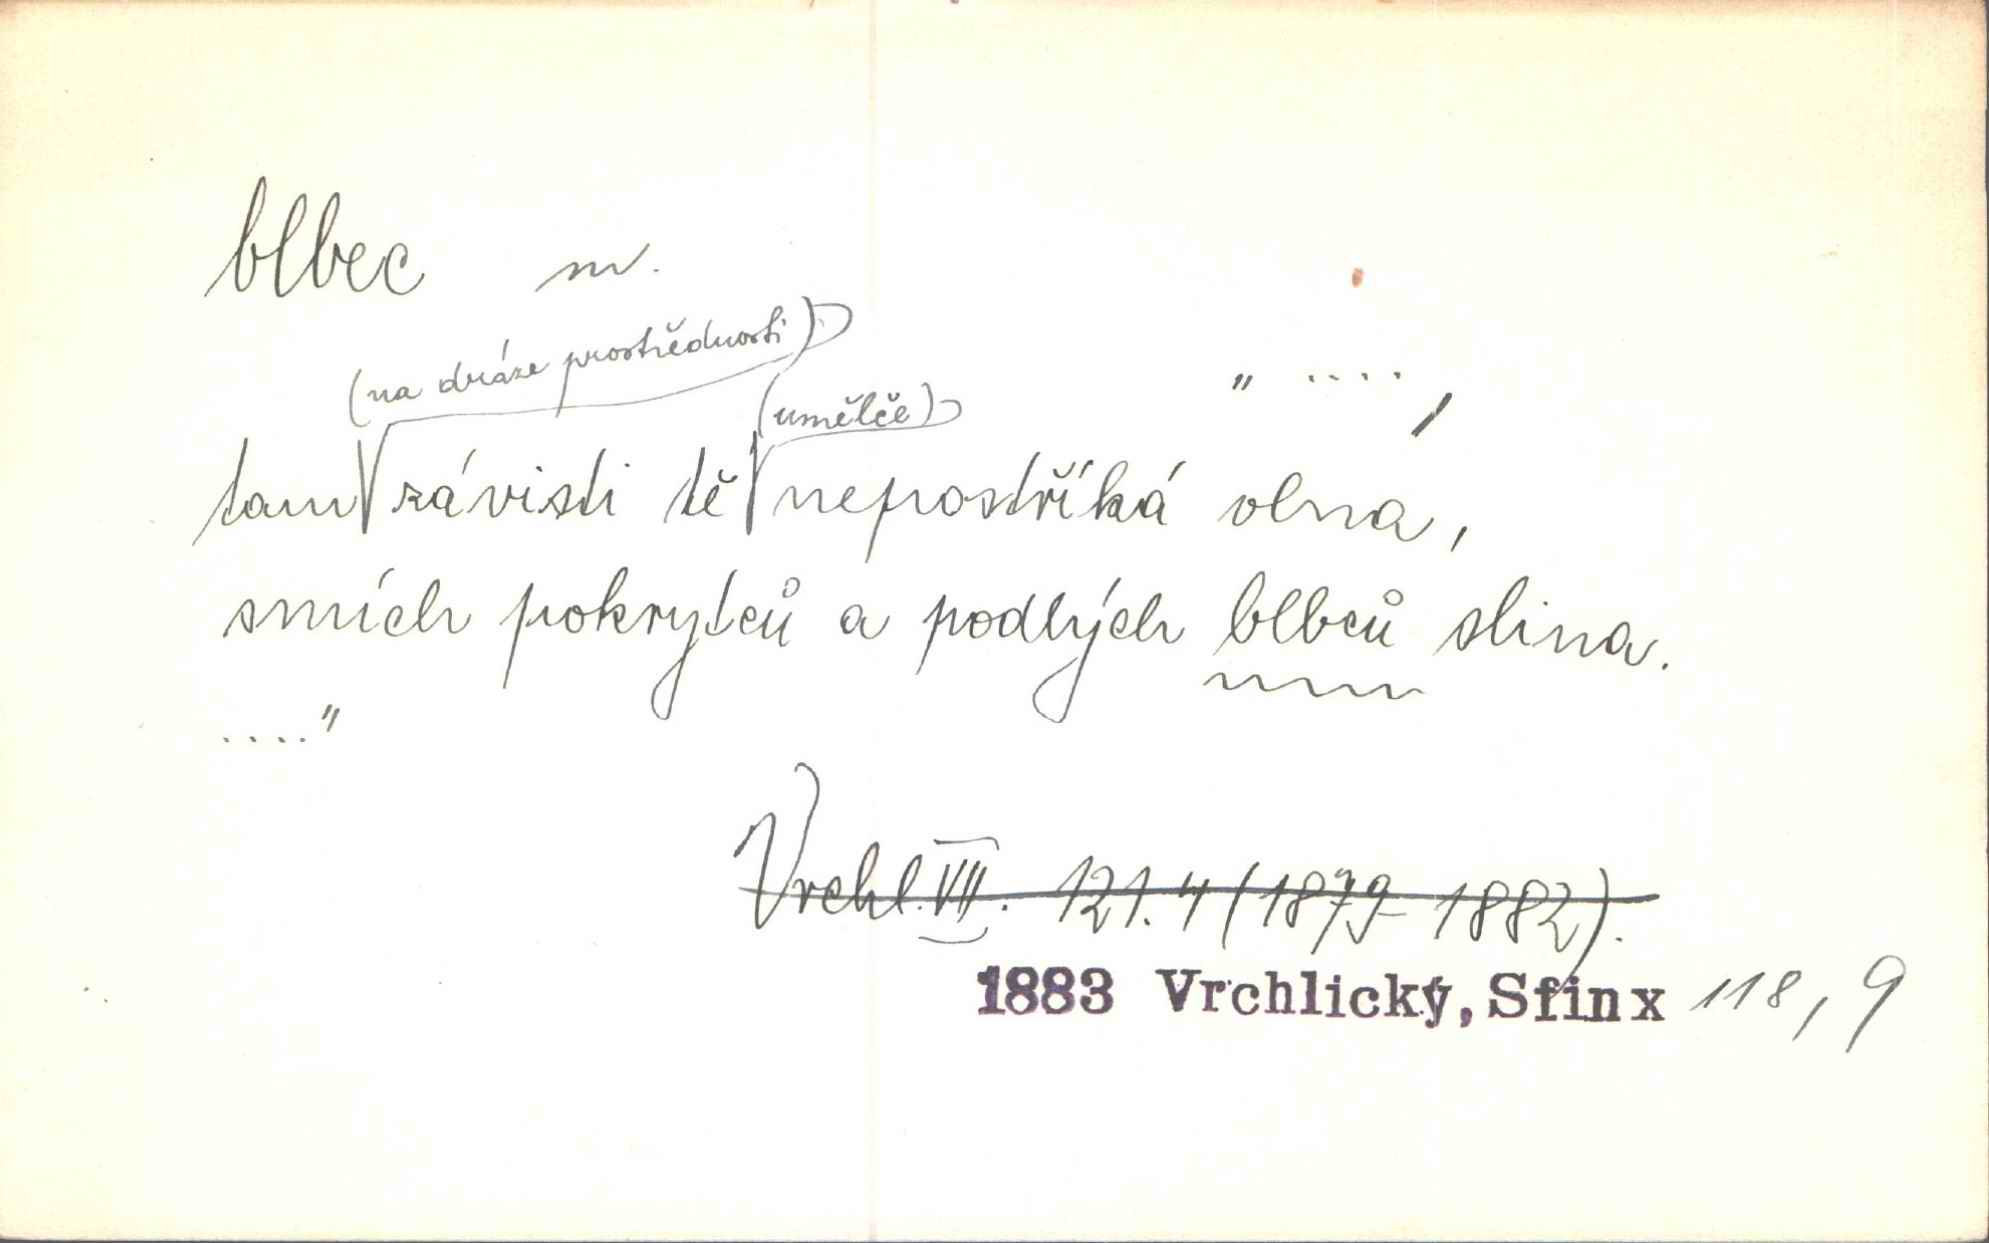 blbec m.
(na dráze prostřednosti)
(umělče)
" ....,
tam závisti tě nepostříká vlna,
smích pokrytců a podlých blbců slina.
...."
Vrchl. VII. 121.4 (1879-1882).
1883 Vrchlický, Sfinx 118,9